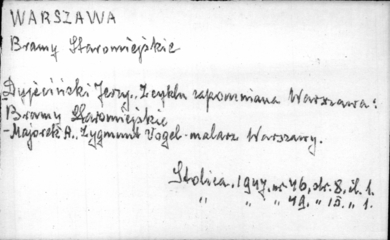 WARSZAWA
Bramy Staromiejskie
Dyjeciński Jerzy., Z cyklu zapomniana Warszawa:
Bramy Staromiejskie
-Majorek A., Zygmunt Vogel-malarz Warszawy.
Stolica, 1947, nr 46, str. 8, il. 1.
" " " 49, " 10, " 1.